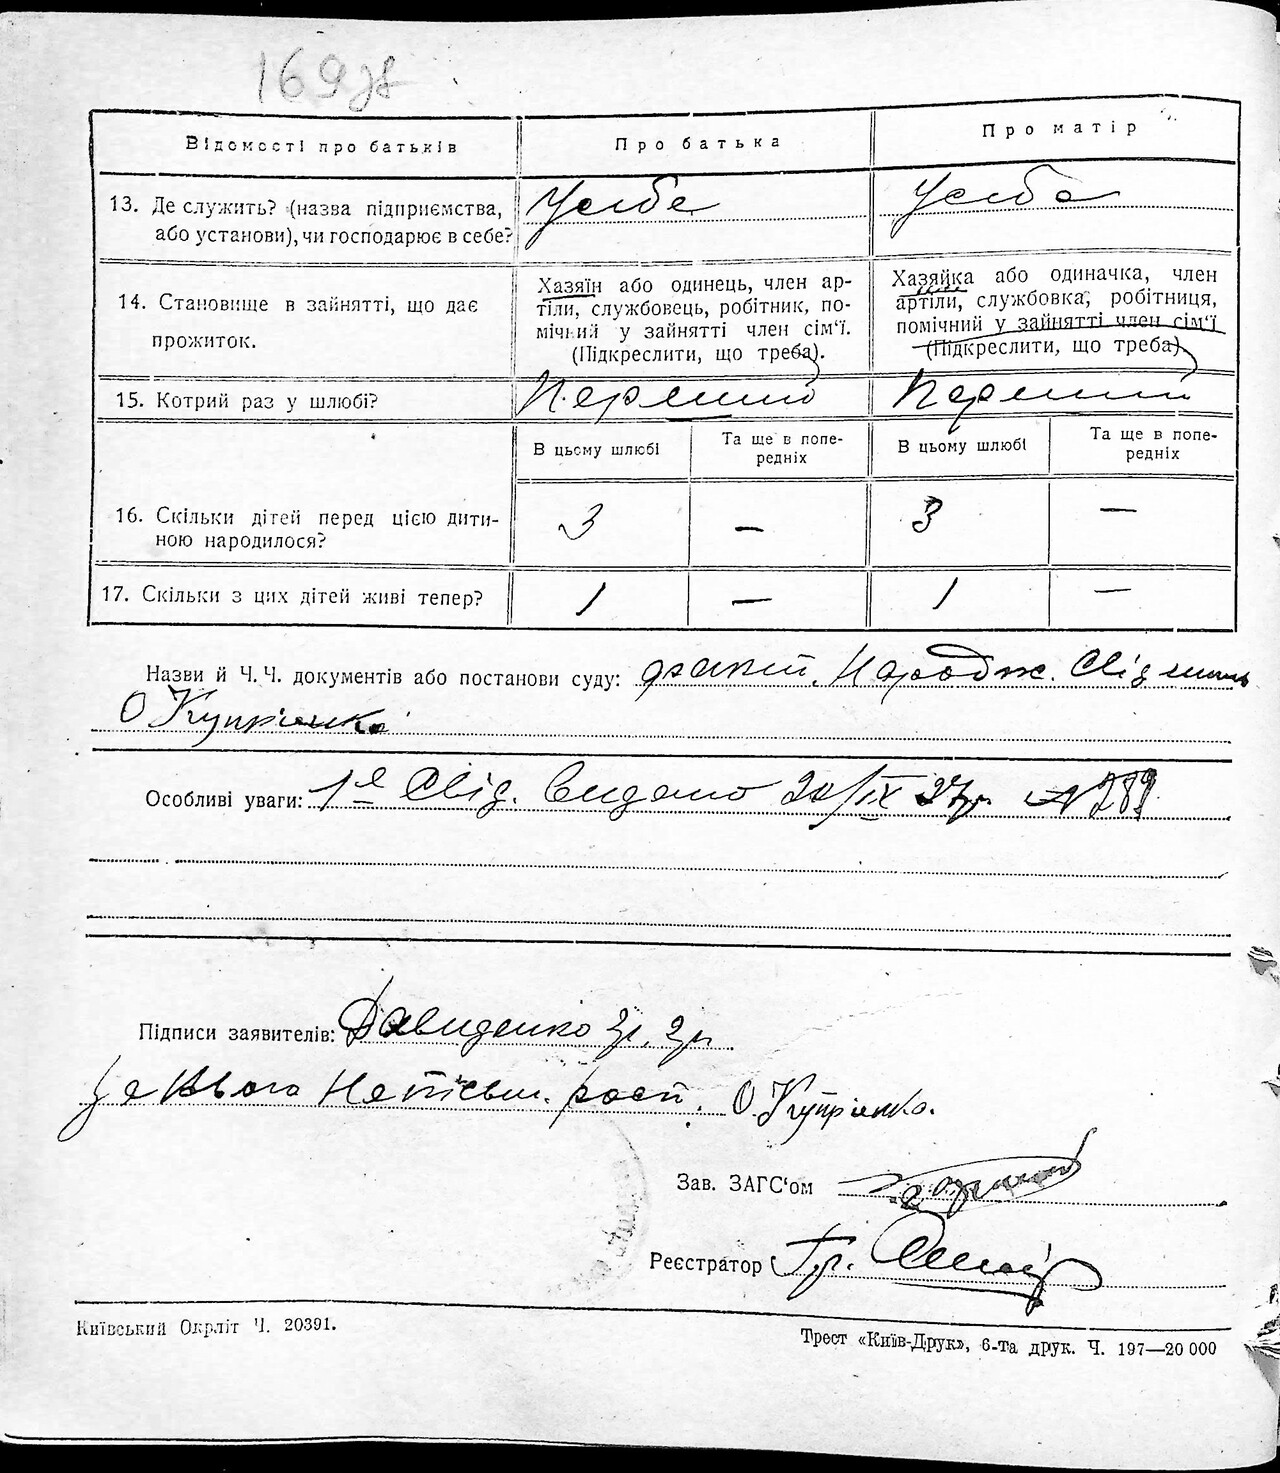 169зв
Відомості про батьків
Про батька
Про матір
13. Де служить? (назва підприємства,
або установи), чи господарює в себе?
У себе
У себе
14. Становище в зайнятті, що дає
прожиток.
Хазяїн або одинець, член ар-
тіли, службовець, робітник, по-
мічний у зайнятті член сім'ї.
(Підкреслити, що треба).
Хазяйка або одиначка, член
артіли, службовка, робітниця,
помічний у зайнятті член сім'ї
(Підкреслити, що треба).
15. Котрий раз у шлюбі?
Перший
Перший
В цьому шлюбі
Та ще в попе-
редніх
В цьому шлюбі
Та ще в попе-
редніх
16. Скільки дітей перед цією дити-
ною народилося?
3
—
3
—
17. Скільки з цих дітей живі тепер?
1
—
1
—
Назви й Ч. Ч. документів або постанови суду: факт. Народж.
О Купрієнко
Особливі уваги: Свід. видано 20/IX 27р. № 789
Підписи заявителів: Давиденко
За нього Неписьм. розп. О. Купрієнко.
Зав. ЗАГС'ом
Реєстратор Гр.
Київський Окрліт Ч. 20391.
Трест «Київ-Друк», 6-та друк. Ч. 197—20 000